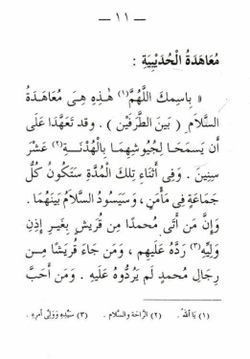 — ١١ —
مُعَاهَدَةُ الْحُدَيْبِيَةِ :
« بِاسْمِكَ اللَّهُمَّ(١) هٰذِهِ هِىَ مُعَاهَدَةُ
السَّلَامِ ( بَيْنَ الطَّرَفَيْنِ ) . وقد تَعَهَّدَا عَلَى
أَن يَسْمَحَا لِجُيُوشِهِمَا بِالْهُدْنَةِ(٢) عَشْرَ
سِنِينَ . وَفِى أَثْنَاءِ تِلكَ الْمُدَّةِ سَتَكُونُ كُلُّ
جَمَاعَةٍ فى مَأْمَنٍ ، وَسَيَسُودُ السَّلَامُ بَيْنَهُمَا .
وَإِنَّ مَن أَتَى محمدًا مِن قُرَيشٍ بِغَيرِ إِذنِ
وَلِيِّهِ(٣) رَدَّهُ عَلَيهِم ، وَمَن جَاءَ قُرَيشًا مِن
رِجَالِ محمدٍ لَم يَرُدُّوهُ عَلَيهِ . وَمَن أَحَبَّ
(١) يَا أَللهُ . (٢) الرَّاحَة والسَّلام . (٣) سَيِّدِه وَوَلِىِّ أمرِهِ .